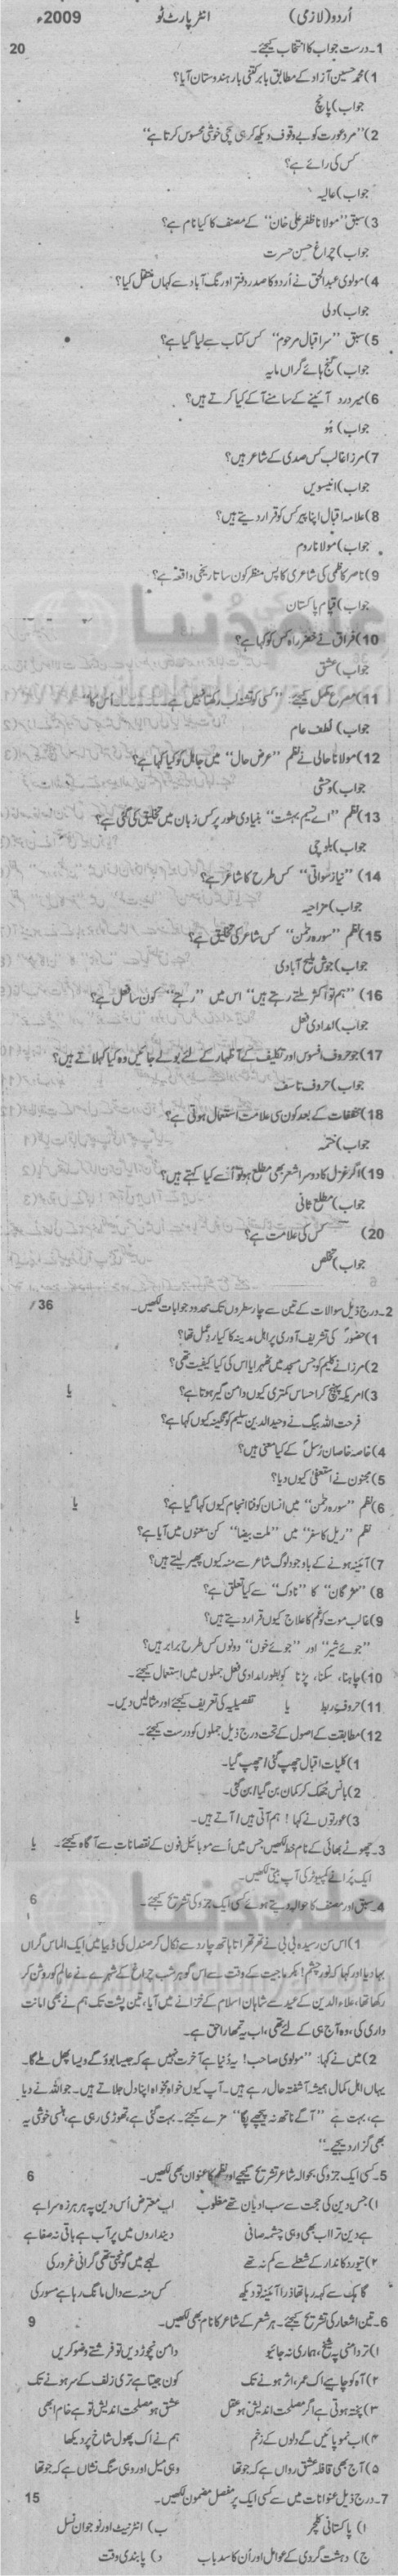 اُردو(لازمی) انٹر پارٹ ٹو 2009ء
1۔درست جواب کا انتخاب کیجئے۔ 20
1)محمد حسین آزاد کے مطابق بابر کتنی بار ہندوستان آیا؟
جواب)پانچ
2)"مرد عورت کو بے وقوف دیکھ کر ہی سچی خوشی محسوس کرتا ہے"
کس کی رائے ہے؟
جواب)عالیہ
3)سبق "مولانا ظفر علی خان" کے مصنف کا کیا نام ہے؟
جواب)چراغ حسن حسرت
4)مولوی عبدالحق نے اُردو کا صدر دفتر اورنگ آباد سے کہاں منتقل کیا؟
جواب)دلی
5)سبق "سر اقبال مرحوم" کس کتاب سے لیا گیا ہے؟
جواب)گنج ہائے گراں مایہ
6)میر درد آئینے کے سامنے آکے کیا کرتے ہیں؟
جواب)ہُو
7)مرزا غالب کس صدی کے شاعر ہیں؟
جواب)انیسویں
8)علامہ اقبال اپنا پیر کس کو قرار دیتے ہیں؟
جواب)مولانا روم
9)ناصر کاظمی کی شاعری کا پس منظر کون سا تاریخی واقعہ ہے؟
جواب)قیام پاکستان
10)فراق نے خضر راہ کس کو کہا ہے؟
جواب)عشق
11)مصرع مکمل کیجئے۔ "کسی کو تشنہ لب رکھتا نہیں ہے۔۔۔۔۔۔اس کا"
جواب) لطف عام
12)مولانا حالی نے نظم "عرض حال" میں جاہل کو کیا کہا ہے؟
جواب)وحشی
13)نظم "اے نسیم بہشت" بنیادی طور پر کس زبان میں تخلیق کی گئی ہے؟
جواب)بلوچی
14) "نیاز سواتی" کس طرح کا شاعر ہے؟
جواب)مزاحیہ
15)نظم "سورہ رحمٰن" کس شاعر کی تخلیق ہے؟
جواب)جوش ملیح آبادی
16) "ہم تو اکثر ملتے رہتے ہیں" اس میں "رہتے" کون سا فعل ہے؟
جواب)امدادی فعل
17)جو حروف افسوس اور تکلیف کے اظہار کے لئے بولے جائیں وہ کیا کہلاتے ہیں؟
جواب)حروف تاسف
18)مخففات کے بعد کون سی علامت استعمال ہوتی ہے؟
جواب)ختمہ
19)اگر غزل کا دوسرا شعر بھی مطلع ہو تو اُسے کیا کہتے ہیں؟
جواب)مطلع ثانی
20) ؔ کس کی علامت ہے؟
جواب)تخلص
2۔درج ذیل سوالات کے تین سے چار سطروں تک محدود جوابات لکھیں۔ 36/
1)حضورؐ کی تشریف آوری پر اہل مدینہ کا کیا ردعمل تھا؟
2)مرزا نے کلیم کو جس مسجد میں ٹھہرایا اس کی کیا کیفیت تھی؟
3)امریکہ پہنچ کر احساس کمتری کیوں دامن گیر ہوتا ہے؟ یا
فرحت اللہ بیگ نے وحید الدین سلیم کو نگینہ کیوں کہا ہے؟
4)خاصہ خاصان رُسلؐ کے کیا معنی ہیں؟
5)مجنون نے استعفیٰ کیوں دیا؟
6)نظم "سورہ رحمٰن" میں انسان کو فنا انجام کیوں کہا گیا ہے؟ یا
نظم "ریل کا سفر" میں "ملت بیضا" کن معنوں میں آیا ہے؟
7)آئینہ ہونے کے باوجود لوگ شاعر سے منہ کیوں پھیر لیتے ہیں؟
8) "مژگان" کا "ناوک" سے کیا تعلق ہے؟
9)غالب موت کو غم کا علاج کیوں قرار دیتے ہیں؟ یا
"جوئے شیر" اور "جوئے خوں" دونوں کس طرح برابر ہیں؟
10)چاہنا، سکنا، پڑنا کو بطور امدادی فعل جملوں میں استعمال کیجئے۔
11)حروف ربط یا تفصیلیہ کی تعریف کیجئے اور مثالیں دیں۔
12)مطابقت کے اصول کے تحت درج ذیل جملوں کو درست کیجئے۔
1)کلیات اقبال چھپ گئی/چھپ گیا۔
2)بانس جھک کر کمان بن گیا/بن گئی۔
3)عورتوں نے کہا! ہم آتی ہیں/آتے ہیں۔
3۔چھوٹے بھائی کے نام خط لکھیں جس میں اُسے موبائیل فون کے نقصانات سے آگاہ کیجئے۔ یا
ایک پُرانے کمپیوٹر کی آپ بیتی لکھیں۔
4۔سبق اور مصنف کا حوالہ دیتے ہوئے کسی ایک جزو کی تشریح کیجئے۔ 6
1)اس سن رسیدہ بی بی نے تھرتھراتا ہاتھ چادر سے نکال کر صندل کی ڈبیا میں ایک الماس گراں
بہا دیا اور کہا کہ نور چشم! بکرماجیت کے وقت سے اس گوہر شب چراغ کے شہرے نے عالم کو روشن کر
رکھا تھا، علاءالدین کے عہد سے شاہان اسلام کے خزانے میں آیا، تین پشت تک ہم نے بھی امانت
داری کی، وہ آج ہی کے لئے تھی، اب یہ تمھارا حق ہے۔
2)میں نے کہا: "مولوی صاحب! یہ دُنیا ہے آخرت نہیں ہے کہ جیسا بوؤ گے ویسا پھل ملے گا۔
یہاں اہل کمال ہمیشہ آشفتہ حال رہے ہیں۔ آپ کیوں خواہ مخواہ اپنا دل جلاتے ہیں۔ جو اللہ نے دیا
ہے، بہت ہے "آگے ناتھ نہ پیچھے پگا" مزے کیجئے۔ بہت گئی ہے، تھوڑی رہی ہے، ہنسی خوشی یہ
بھی گزار دیجئے۔"
5۔کسی ایک جزو کی بحوالہ شاعر تشریح کیجئے اور نظم کا عنوان بھی لکھیں۔ 6
۱)جس دین کی حجت سے سب ادیان تھے مغلوب اب معترض اُس دین پہ ہر ہرزہ سرا ہے
ہے دین ترا اب بھی وہی چشمہ صافی دینداروں میں پر آب ہے باقی نہ صفا ہے
۲)تیور دکاندار کے شعلے سے کم نہ تھے لہجے میں گونجتی تھی گرانی غرور کی
گاہک سے کہہ رہا تھا ذرا آئینہ تو دیکھ کس منہ سے دال مانگ رہا ہے مسور کی
6۔تین اشعار کی تشریح کیجئے۔ ہر شعر کے شاعر کا نام بھی لکھیں۔ 9
۱)تر دامنی پہ شیخ، ہماری نہ جائیو دامن نچوڑ دیں تو فرشتے وضو کریں
۲)آہ کو چاہیے اک عمر، اثر ہونے تک کون جیتا ہے تری زلف کے سر ہونے تک
۳)پختہ ہوتی ہے اگر مصلحت اندیش ہو عقل عشق ہو مصلحت اندیش تو ہے خام ابھی
۴)اب نمو پائیں گے دلوں کے زخم ہم نے اک پھول شاخ پر دیکھا
۵)آج بھی قافلہ عشق رواں ہے کہ جو تھا وہی میل اور وہی سنگ نشاں ہے کہ جو تھا
7۔درج ذیل عنوانات میں سے کسی ایک پر مفصل مضمون لکھیں۔ 15
ا) پاکستانی کلچر ب) انٹرنیٹ اور نوجوان نسل
ج) دہشت گردی کے عوامل اور اُن کا سدباب د) پابندی وقت